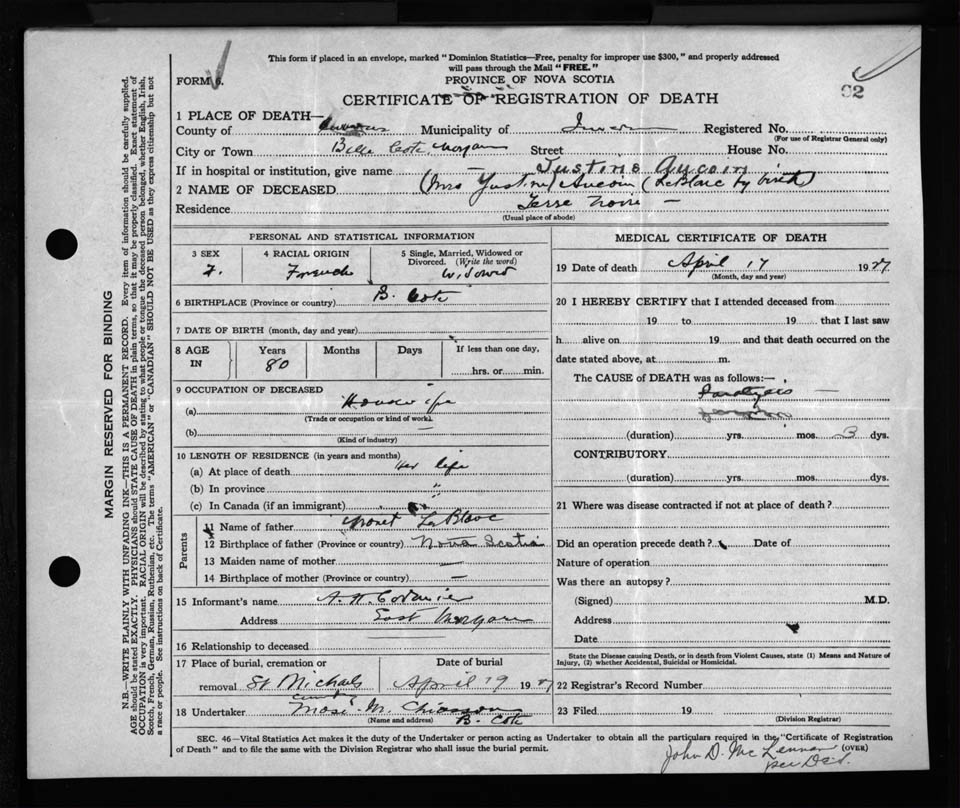 This form if placed in an envelope, marked "Dominion Statistics—Free, penalty for improper use $300," and properly addressed
will pass through the Mail "FREE."
FORM 6.
PROVINCE OF NOVA SCOTIA
92
CERTIFICATE OF REGISTRATION OF DEATH
1 PLACE OF DEATH—
County of Inverness Municipality of Inverness Registered No.
(For use of Registrar General only)
City or Town Belle Cote, Margaree Street House No.
If in hospital or institution, give name — Justine Aucoin
2 NAME OF DECEASED (Mrs Justine) Aucoin (LeBlanc by birth)
Residence Terre Noire —
(Usual place of abode)
PERSONAL AND STATISTICAL INFORMATION
3 SEX 4 RACIAL ORIGIN 5 Single, Married, Widowed or Divorced. (Write the word)
F. French Widowed
6 BIRTHPLACE (Province or country) B. Cote
7 DATE OF BIRTH (month, day and year)
8 AGE IN Years Months Days If less than one day,
80 hrs. or min.
9 OCCUPATION OF DECEASED
(a) Housewife
(Trade or occupation or kind of work)
(b) —
(Kind of industry)
10 LENGTH OF RESIDENCE (in years and months)
(a) At place of death Her life
(b) In province "
(c) In Canada (if an immigrant)
Parents
11 Name of father LeBlanc
12 Birthplace of father (Province or country) Nova Scotia
13 Maiden name of mother —
14 Birthplace of mother (Province or country) —
15 Informant's name A. H. Cormier
Address East Margaree
16 Relationship to deceased
17 Place of burial, cremation or removal St Michaels
Date of burial April 19 1927
18 Undertaker M. Chiasson
(Name and address) B. Cote
MEDICAL CERTIFICATE OF DEATH
19 Date of death April 17 1927
(Month, day and year)
20 I HEREBY CERTIFY that I attended deceased from
19 to 19 that I last saw
h alive on 19 and that death occurred on the
date stated above, at m.
The CAUSE of DEATH was as follows:—
Paralysis —
(duration) yrs. mos. 3 dys.
CONTRIBUTORY
(duration) yrs. mos. dys.
21 Where was disease contracted if not at place of death?
Did an operation precede death? Date of
Nature of operation
Was there an autopsy?
(Signed) M.D.
Address
Date
State the Disease causing Death, or in death from Violent Causes, state (1) Means and Nature of
Injury, (2) whether Accidental, Suicidal or Homicidal.
22 Registrar's Record Number
23 Filed 19
(Division Registrar)
SEC. 46—Vital Statistics Act makes it the duty of the Undertaker or person acting as Undertaker to obtain all the particulars required in the "Certificate of Registration
of Death" and to file the same with the Division Registrar who shall issue the burial permit.
(OVER)
John D. McLennan
per
MARGIN RESERVED FOR BINDING
N.B.—WRITE PLAINLY WITH UNFADING INK—THIS IS A PERMANENT RECORD. Every item of information should be carefully supplied.
AGE should be stated EXACTLY. PHYSICIANS should STATE CAUSE OF DEATH in plain terms, so that it may be properly classified. Exact statement of
OCCUPATION is very important. RACIAL ORIGIN will be described by stating to what people or tongue the deceased person belonged, whether English, Irish,
Scotch, French, German, Russian, Ruthenian, etc. The terms "AMERICAN" or "CANADIAN" SHOULD NOT BE USED as they express citizenship but not
a race or people. See instructions on back of Certificate.